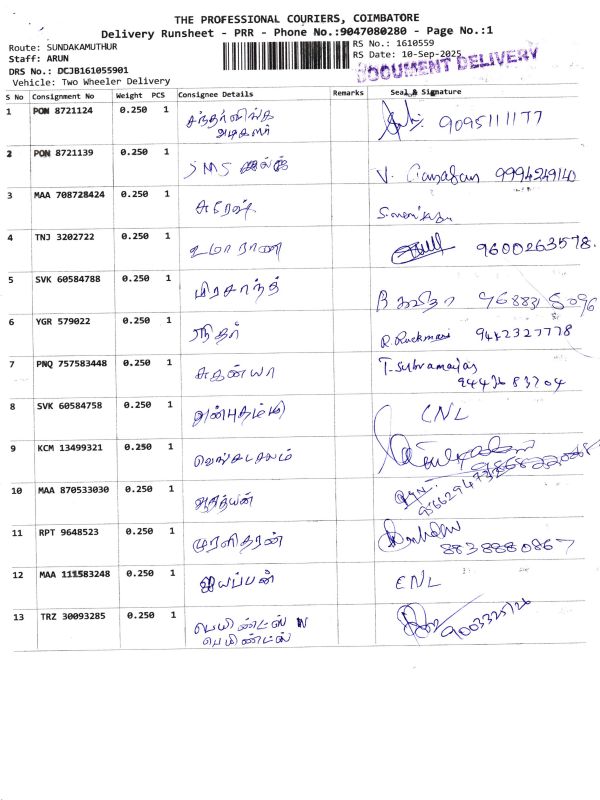 THE PROFESSIONAL COURIERS, COIMBATORE
Delivery Runsheet - PRR - Phone No.:9047080280 - Page No.:1
Route: SUNDAKAMUTHUR
RS No.: 1610559
Staff: ARUN
RS Date: 10-Sep-2025
DRS No.: DCJB161055901
DOCUMENT DELIVERY
Vehicle: Two Wheeler Delivery
S No Consignment No Weight PCS Consignee Details Remarks Seal & Signature
1 PON 8721124 0.250 1 9095111177
2 PON 8721139 0.250 1 SMS V. Ganasan 9994249140
3 MAA 708728424 0.250 1 சுரேஷ்
4 TNJ 3202722 0.250 1 உமா ராணி 9600263578.
5 SVK 60584788 0.250 1 பிரசாந்த் B கவிதா
6 YGR 579022 0.250 1 R. Ruckmani 9442327778
7 PNQ 757583448 0.250 1 சுகன்யா T. Subramaian
9443683704
8 SVK 60584758 0.250 1 CNL
9 KCM 13499321 0.250 1 வெங்கடாசலம்
10 MAA 870533030 0.250 1 ஆதித்யன்
11 RPT 9648523 0.250 1 முரளிதரன்
8838880867
12 MAA 111583248 0.250 1 ஐயப்பன் CNL
13 TRZ 30093285 0.250 1 பெயிண்ட்ஸ் N 9003325126
பெயிண்ட்ஸ்